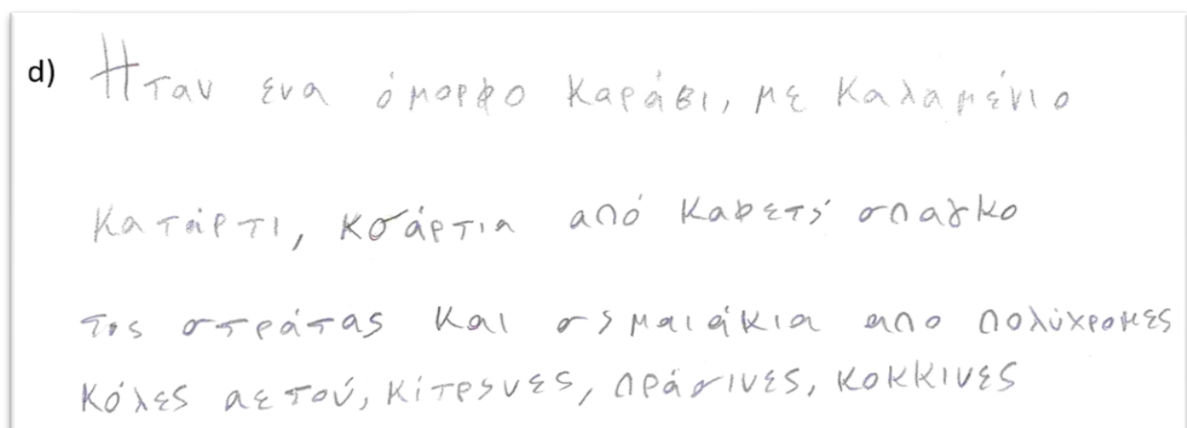 d) Ηταν ενα όμορφο καράβι, με καλαμένιο
κατάρτι, κσάρτια από καφετή σπαγκο
της στράτας και σημαιάκια απο πολύχρομες
κόλες αετού, κίτρηνες, πράσινες, κοκκινες